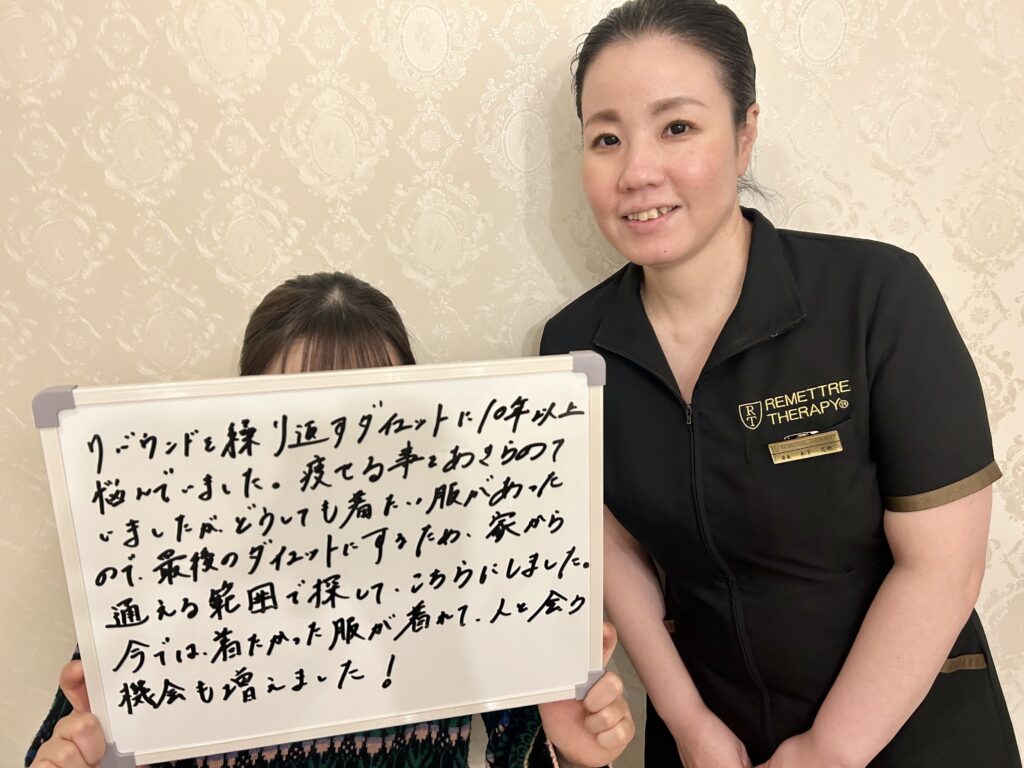 リバウンドを繰り返すダイエットに10年以上
悩んでいました。痩せる事をあきらめて
いましたが、どうしても着たい服があった
ので、最後のダイエットにするため、家から
通える範囲で探して、こちらにしました。
今では、着たかった服が着れて、人と会う
機会も増えました！
REMETTRE
THERAPY®
RT
REMETTRE THERAPY